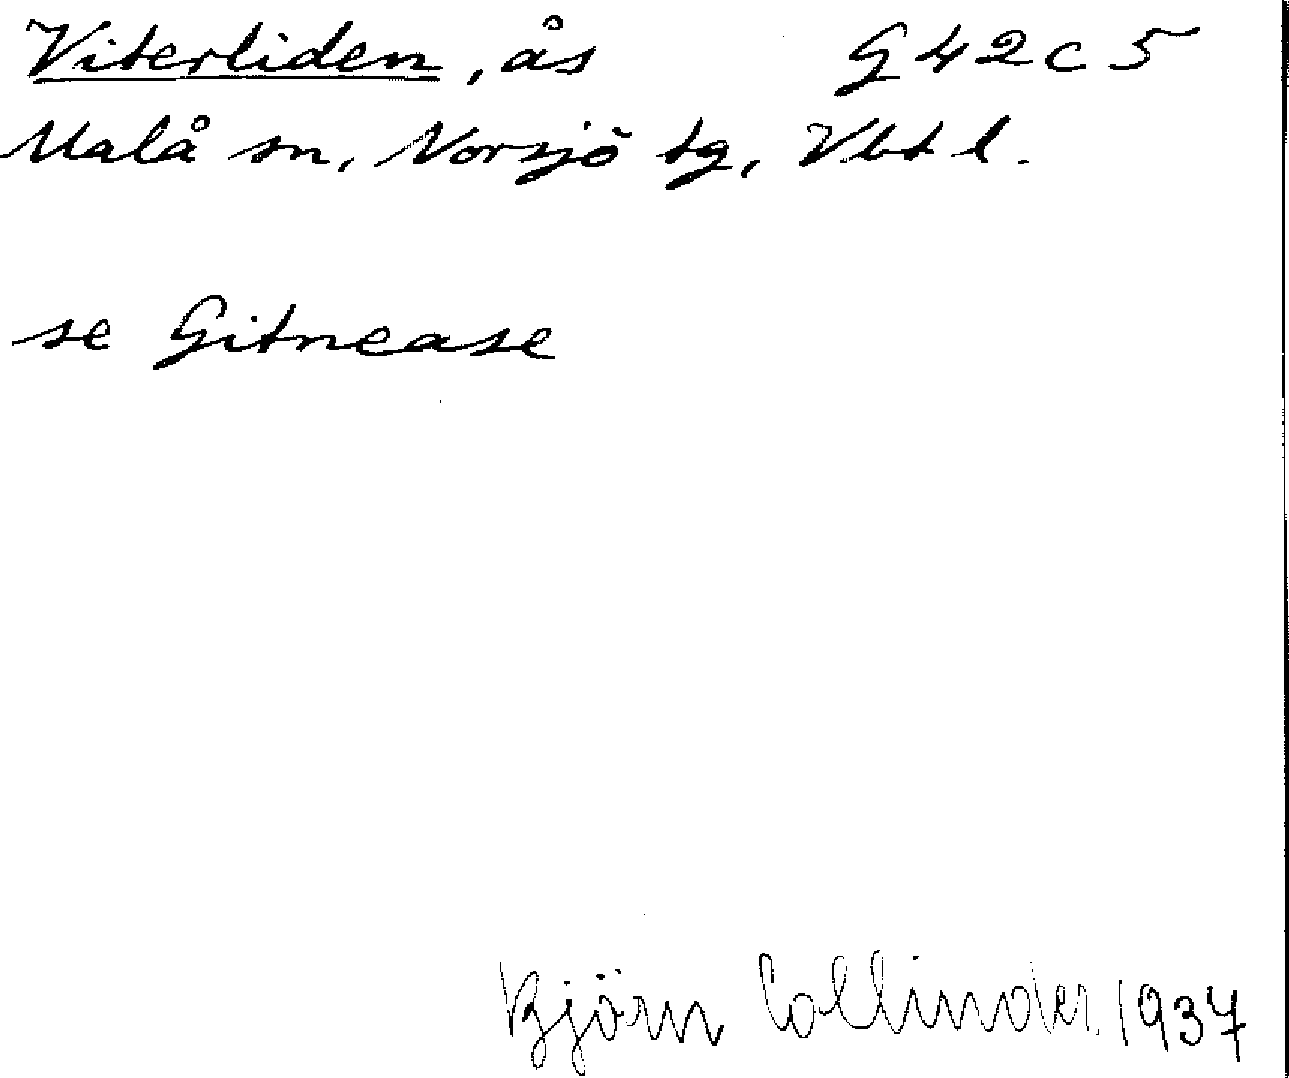 Viterliden, ås G42c5
Malå sn, Norsjö tg, Vbtl.
se Gitnease
Björn Collinder 1937